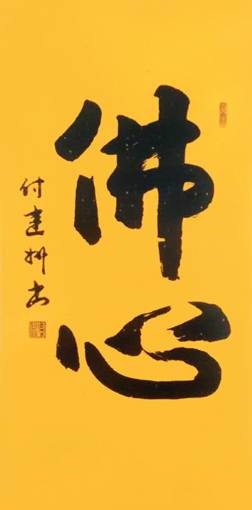 佛心
付建州书